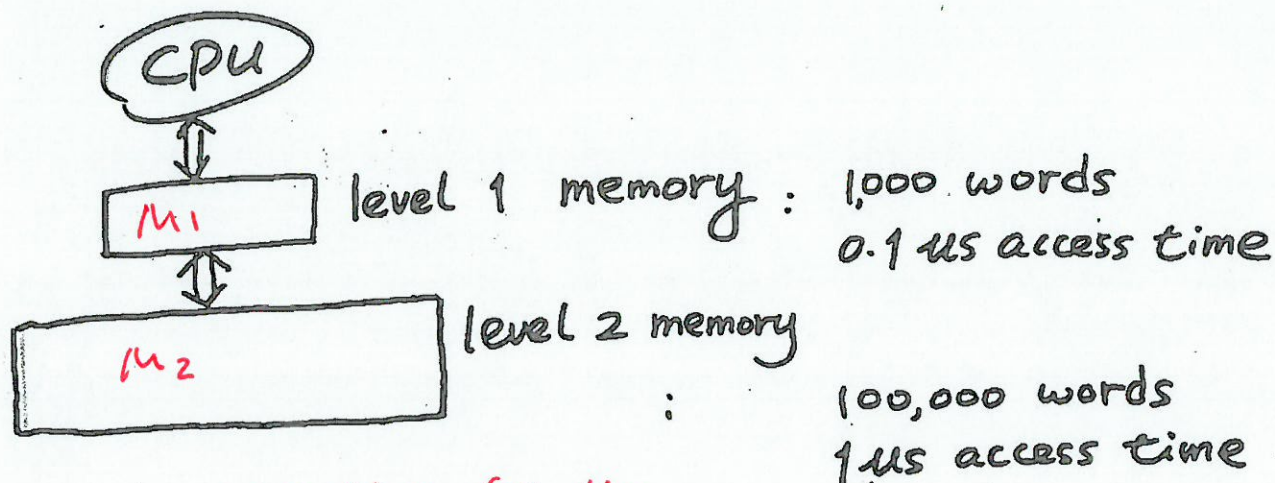 CPU
M1
level 1 memory : 1,000 words
0.1 us access time
level 2 memory
M2
: 100,000 words
1us access time